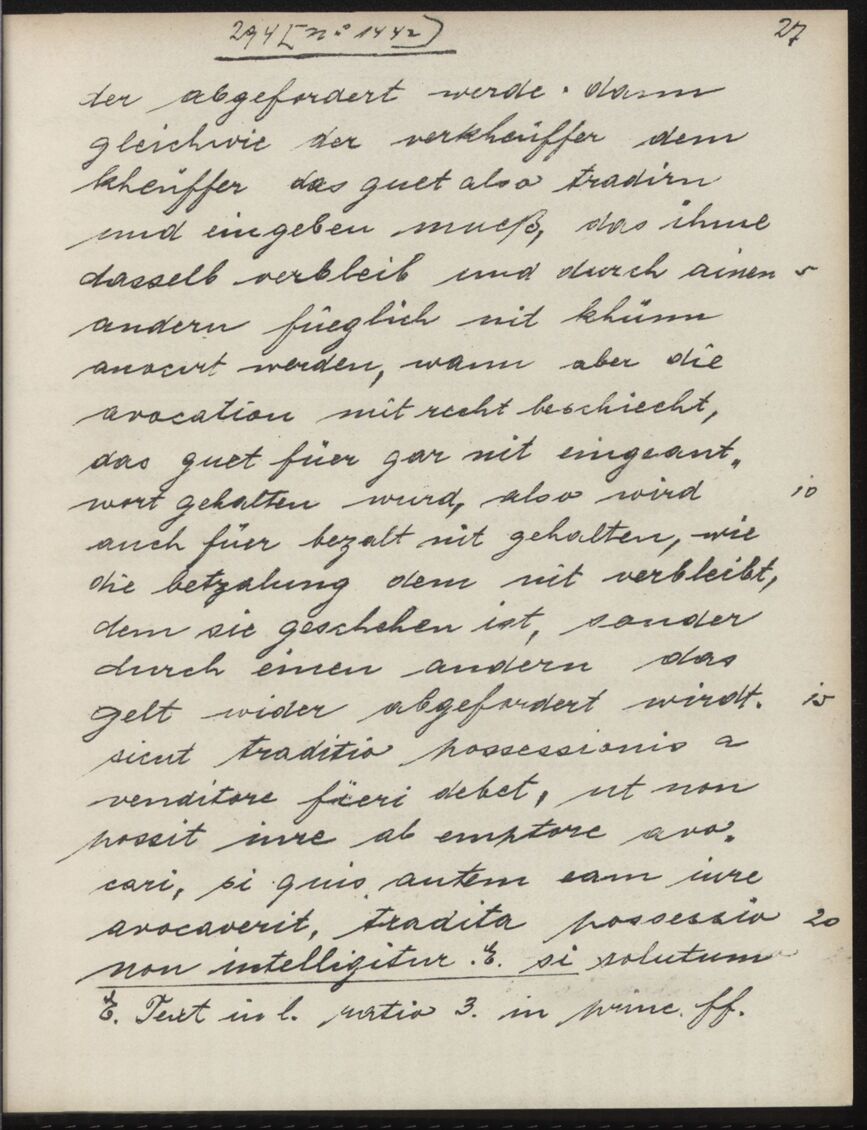 294 [nº 1442]
27
der abgefordert werde. dann
gleichwie der verkheüffer dem
kheüffer das guet also tradirn
und eingeben mueß, das ihme
dasselb verbleib und durch ainen 5
andern füeglich nit khünn
avocirt werden, wann aber die
avocation mit recht beschiecht,
das guet füer gar nit eingeant„
wort gehalten wurd, also wird 10
auch füer bezalt nit gehalten, wie
die betzalung dem nit verbleibt,
dem sie geschehen ist, sonder
durch einen andern das
gelt wider abgefordert wirdt. 15
sicut traditio possessionis a
venditore fieri debet, ut non
possit iure ab emptore avo„
cari, si quis autem eam iure
avocaverit, tradita possessio 20
non intelligitur. E. si solutum
E. Text in l. ratio 3. in princ. ff.